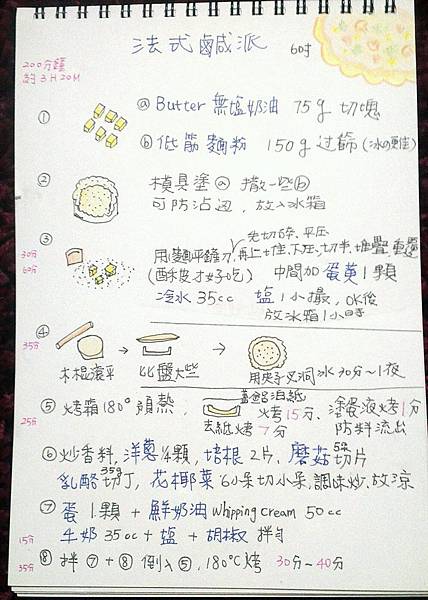 法式鹹派 6吋
200分鐘
約3H20M
① ⓐ Butter 無塩奶油 75g 切塊
ⓑ 低筋麵粉 150g 过篩(冰の更佳)
② 模具塗ⓐ 撒一些ⓑ
可防沾边,放入冰箱
③ 先切碎、平压
30分 用(麵平鏟刀 再上十堆、下压、切半、堆疊、重覆
60分 (酥皮才好吃) 中間加 蛋黄1顆
冷水 35cc 塩1小撮, OK後
放冰箱1小時
④
35分 木棍滾平 比盤大些 用夾子叉洞 冰30分~1夜
⑤ 烤箱180°預熱, 蓋鋁泊紙 烤15分、塗蛋液烤1分
25分 去紙烤7分 防料流出
⑥ 炒香料, 洋蔥¼顆, 培根2片, 磨菇5朵切片
乳酪35g切丁, 花椰菜6小朵切小朵, 調味炒, 放凉
⑦ 蛋1顆 + 鮮奶油 whipping cream 50cc
15分 牛奶35cc + 塩 + 胡椒 拌勻
⑧ 拌⑦+⑥ 倒入⑤, 180°C烤 30分~40分
35分